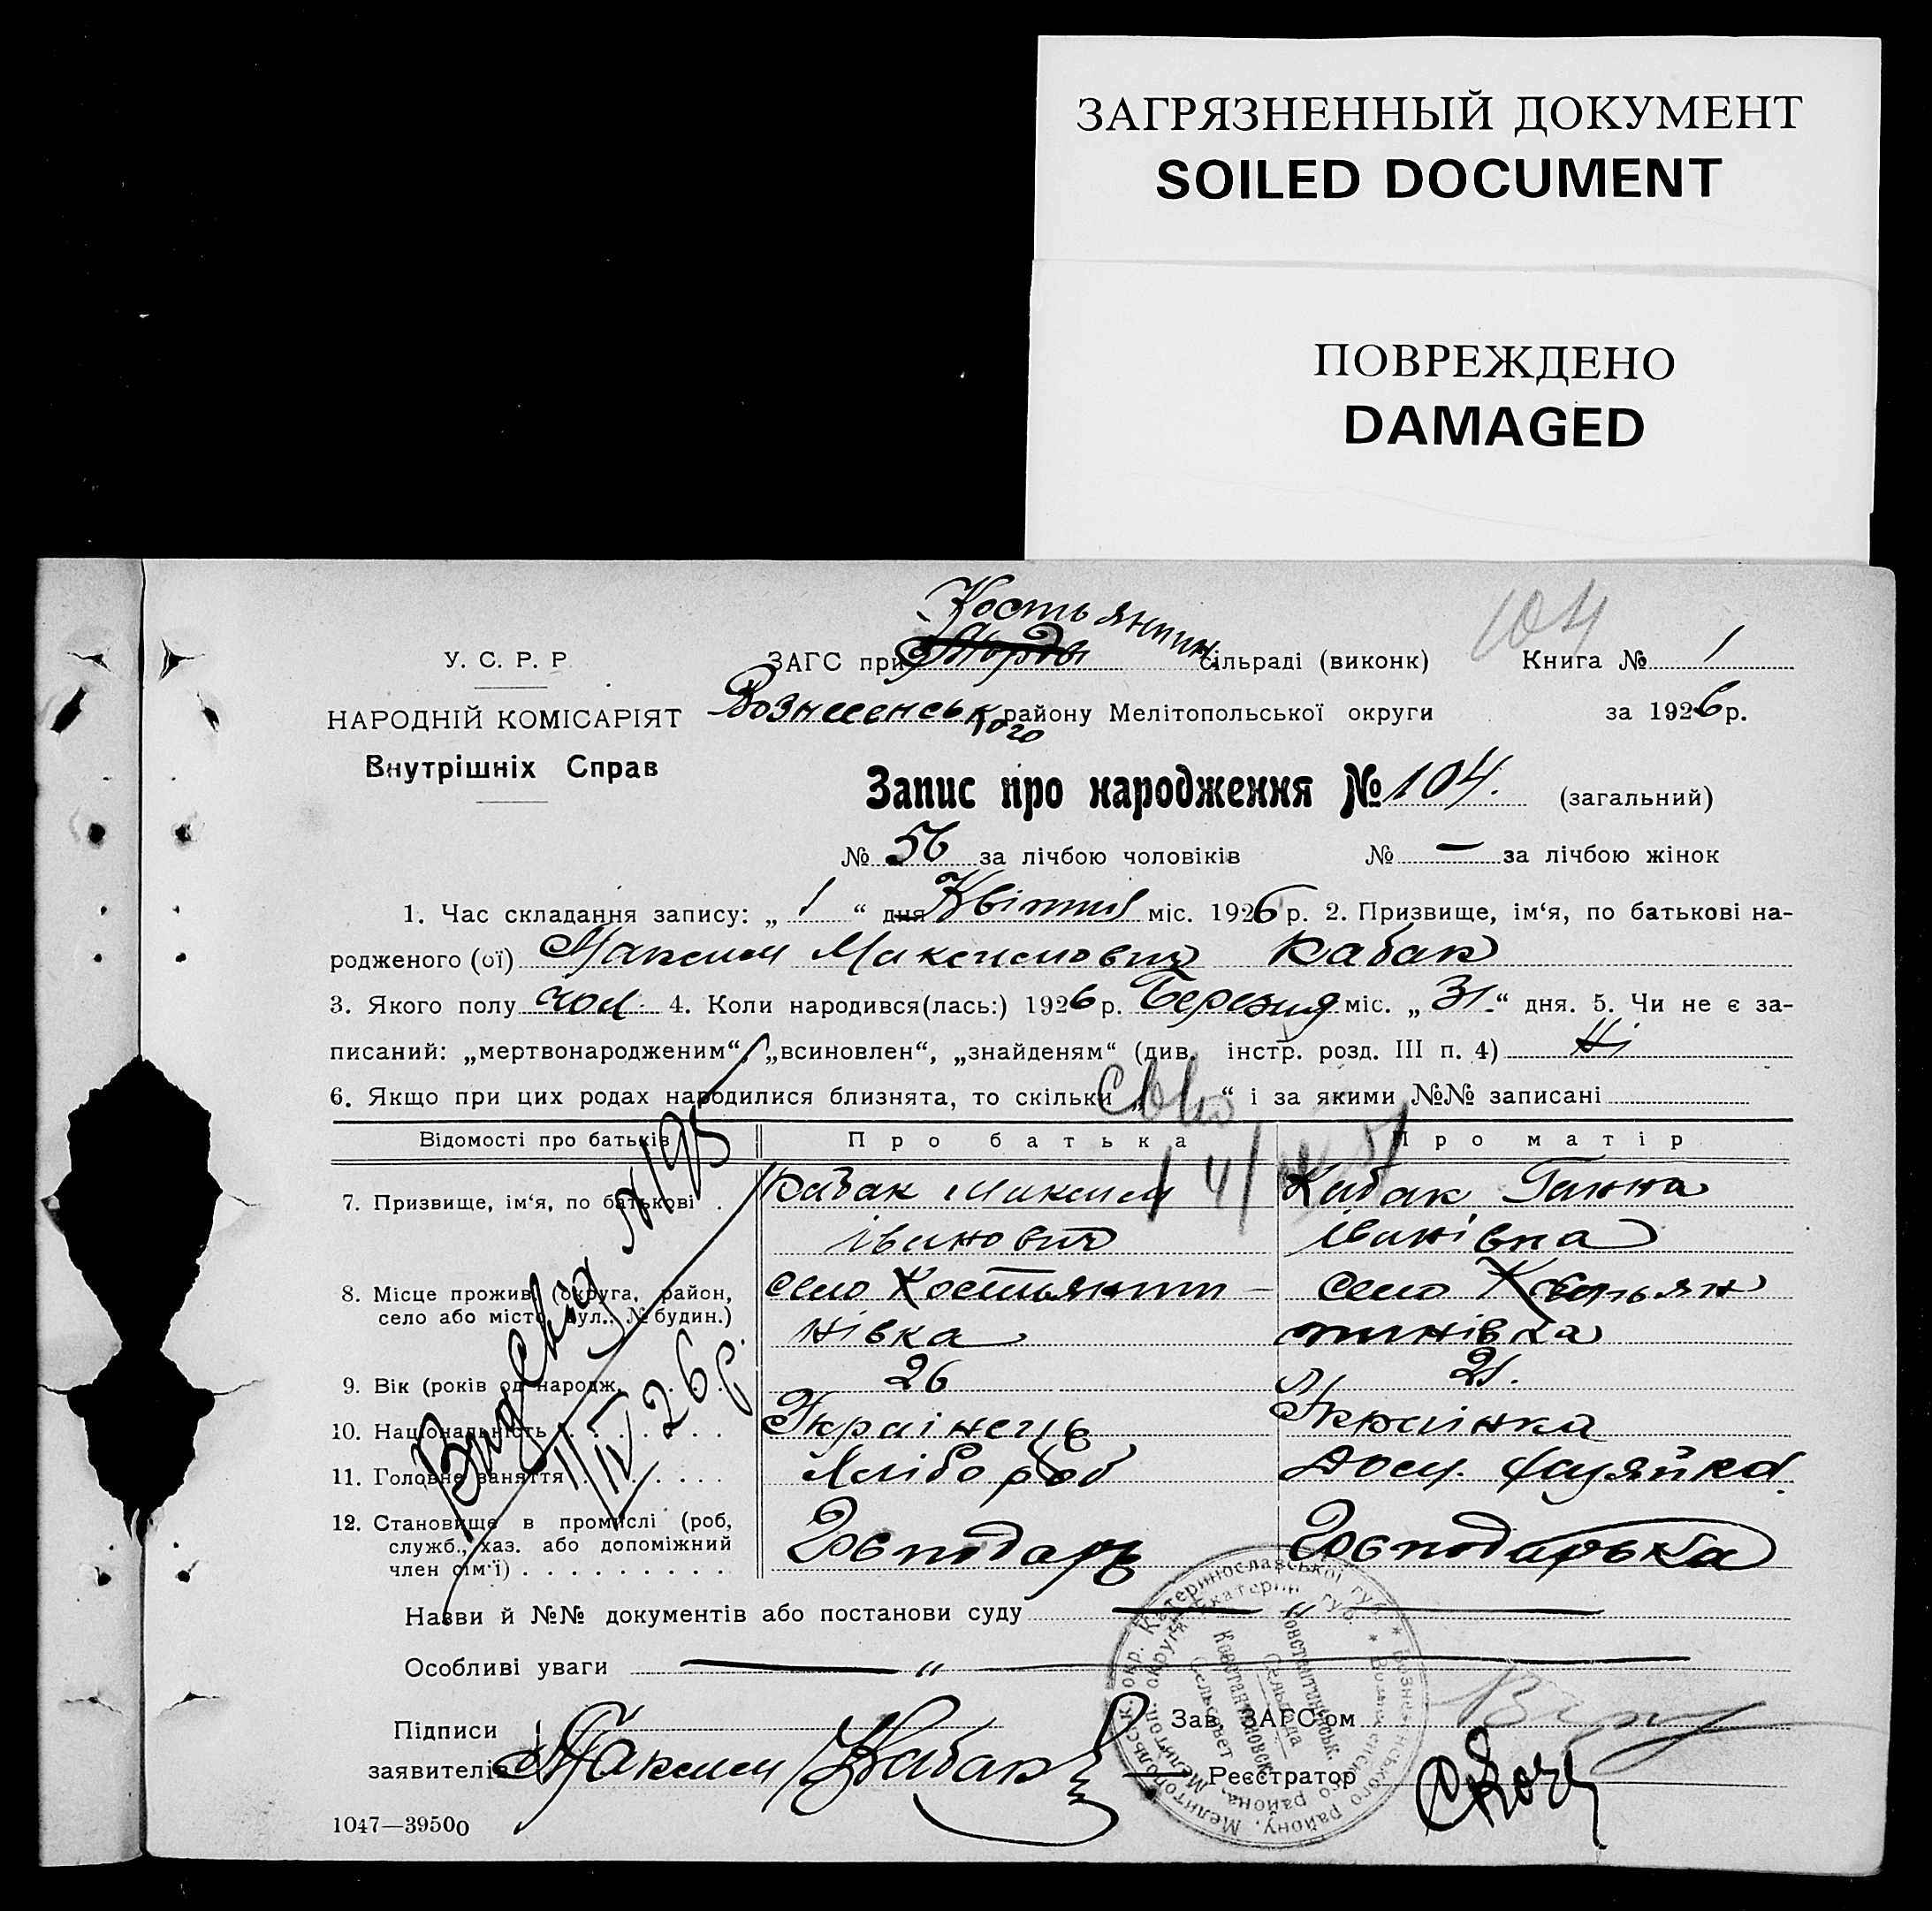 ЗАГРЯЗНЕННЫЙ ДОКУМЕНТ
SOILED DOCUMENT
ПОВРЕЖДЕНО
DAMAGED
104
Костьянтин.
У. С. Р. Р.
ЗАГС при сільраді (виконк)
Книга № 1
НАРОДНІЙ КОМІСАРІЯТ
Вознесенського району Мелітопольської округи
за 1926 р.
Внутрішніх Справ
Запис про народження № 104. (загальний)
№ 56 за лічбою чоловіків № — за лічбою жінок
1. Час складання запису: „ 1 “ дня Квітня міс. 1926 р. 2. Призвище, ім‘я, по батькові на-
родженого (ої) Максим Максимович Кабак
3. Якого полу чол. 4. Коли народився(лась:) 1926 р. Березня міс. „ 31 “ дня. 5. Чи не є за-
писаний: „мертвонародженим“, „всиновлен“, „знайденям“ (див. інстр. розд. III п. 4) Ні
6. Якщо при цих родах народилися близнята, то скільки „ “ і за якими №№ записані
Відомості про батьків Про батька Про матір
7. Призвище, ім‘я, по батькові . Кабак Максим Кабак Ганна
Іванович Іванівна
8. Місце прожив. (округа, район, село Костьянти- село Костьян
село або місто, вул., № будин.) нівка тинівка
9. Вік (років од народж. 26 21.
10. Національність Українець Українка
11. Головне заняття Хлібороб Дом. хазяйка
12. Становище в промислі (роб, служб., хаз. або допоміжний член сім‘ї) Господарь Господарька
Видсвид № 195
1/IV 26 р.
Назви й №№ документів або постанови суду — „ —
Особливі уваги — „ —
Підписи
заявителів Максим Кабак
Зав. ЗАГС‘ом
Реєстратор
1047—39500